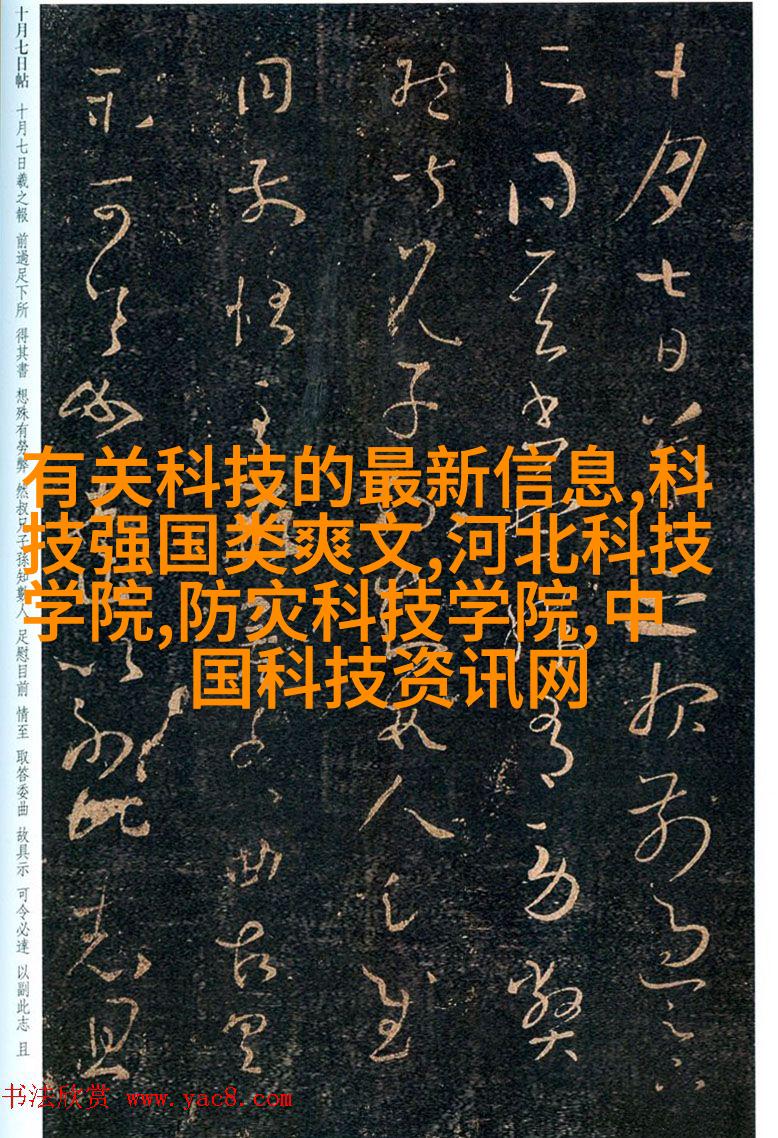 十月七日帖 十月七日羲之報 前過足下所 得其書 想殊有勞弊 然叔兄子孫知數人 足慰目前 情至 取答委曲 故具示 可令必達 以副此志 且
十月七日羲之報前過足下
所得其書想殊有勞弊
然叔兄子孫數人足慰
目前情至取答委曲故具
示可令必達以副此志且
有关科技的最新信息,科
技强国类爽文,河北科技
学院,防灾科技学院,中
国科技资讯网
书法欣赏 www.yac8.com